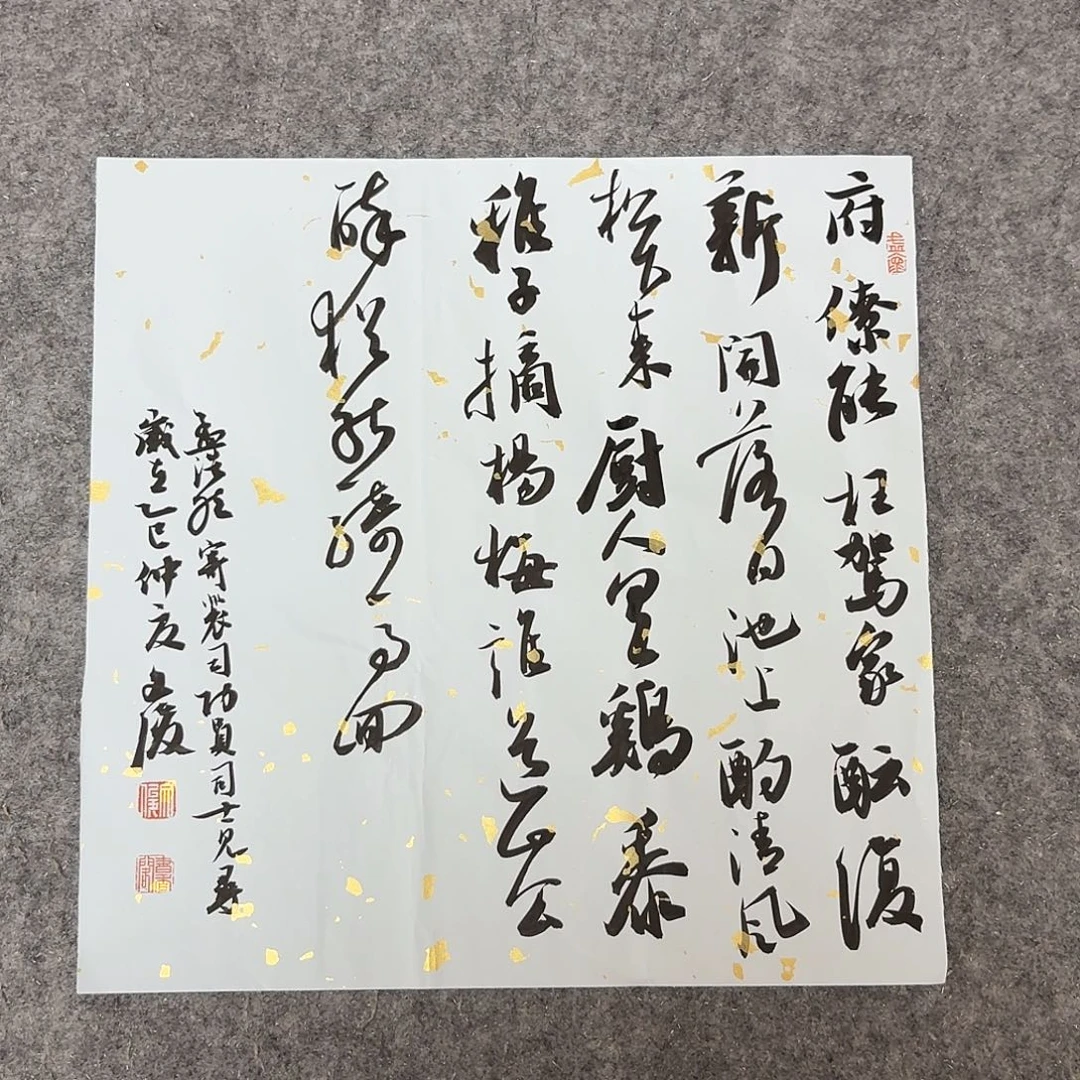 府僚能枉駕家酝復
新開落日池上酌清風
松下来厨人具鷄黍
稚子摘楊梅誰道山公
醉猶能騎馬回
孟浩然寄裴司功員司士見尋
歲在乙巳仲夏文